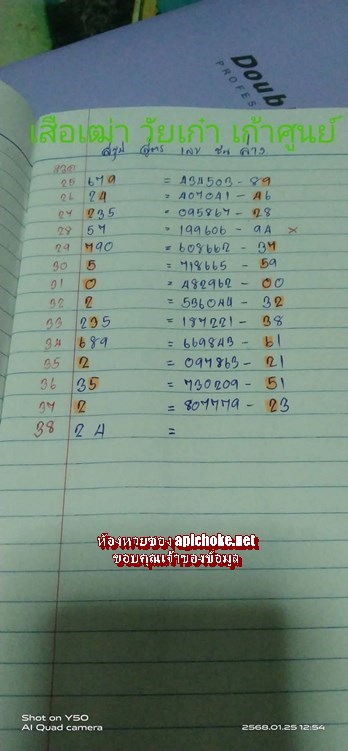 Doub
PROFES
เสือเฒ่า วัยเก๋า เก้าศูนย์
สรุป สูตร เลข ชน ล่าง
งวด
25 679 = 434503 - 89
26 24 = 407041 - 46
27 235 = 095867 - 28
28 57 = 199606 - 94 ×
29 790 = 608662 - 37
30 5 = 718665 - 59
31 0 = 482962 - 00
32 2 = 536044 - 32
33 235 = 187221 - 38
34 689 = 669843 - 61
35 2 = 097863 - 21
36 35 = 730209 - 51
37 2 = 807779 - 23
38 24 =
ห้องหวยของ apichoke.net
ขอบคุณเจ้าของข้อมูล
Shot on Y50
AI Quad camera
2568.01.25 12:54